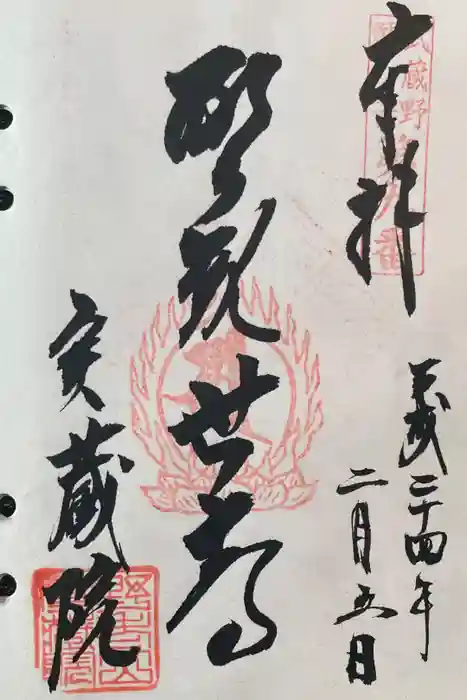 奉拝
武蔵野
第九番
平成二十四年
二月五日
聖観世音
実蔵院